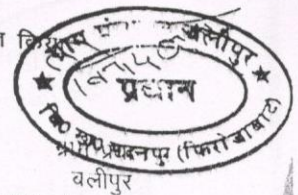 किय
ग्राम पंचायत वलीपुर
प्रधान
वि० ख० मदनपुर (फिरोजाबाद)
वलीपुर